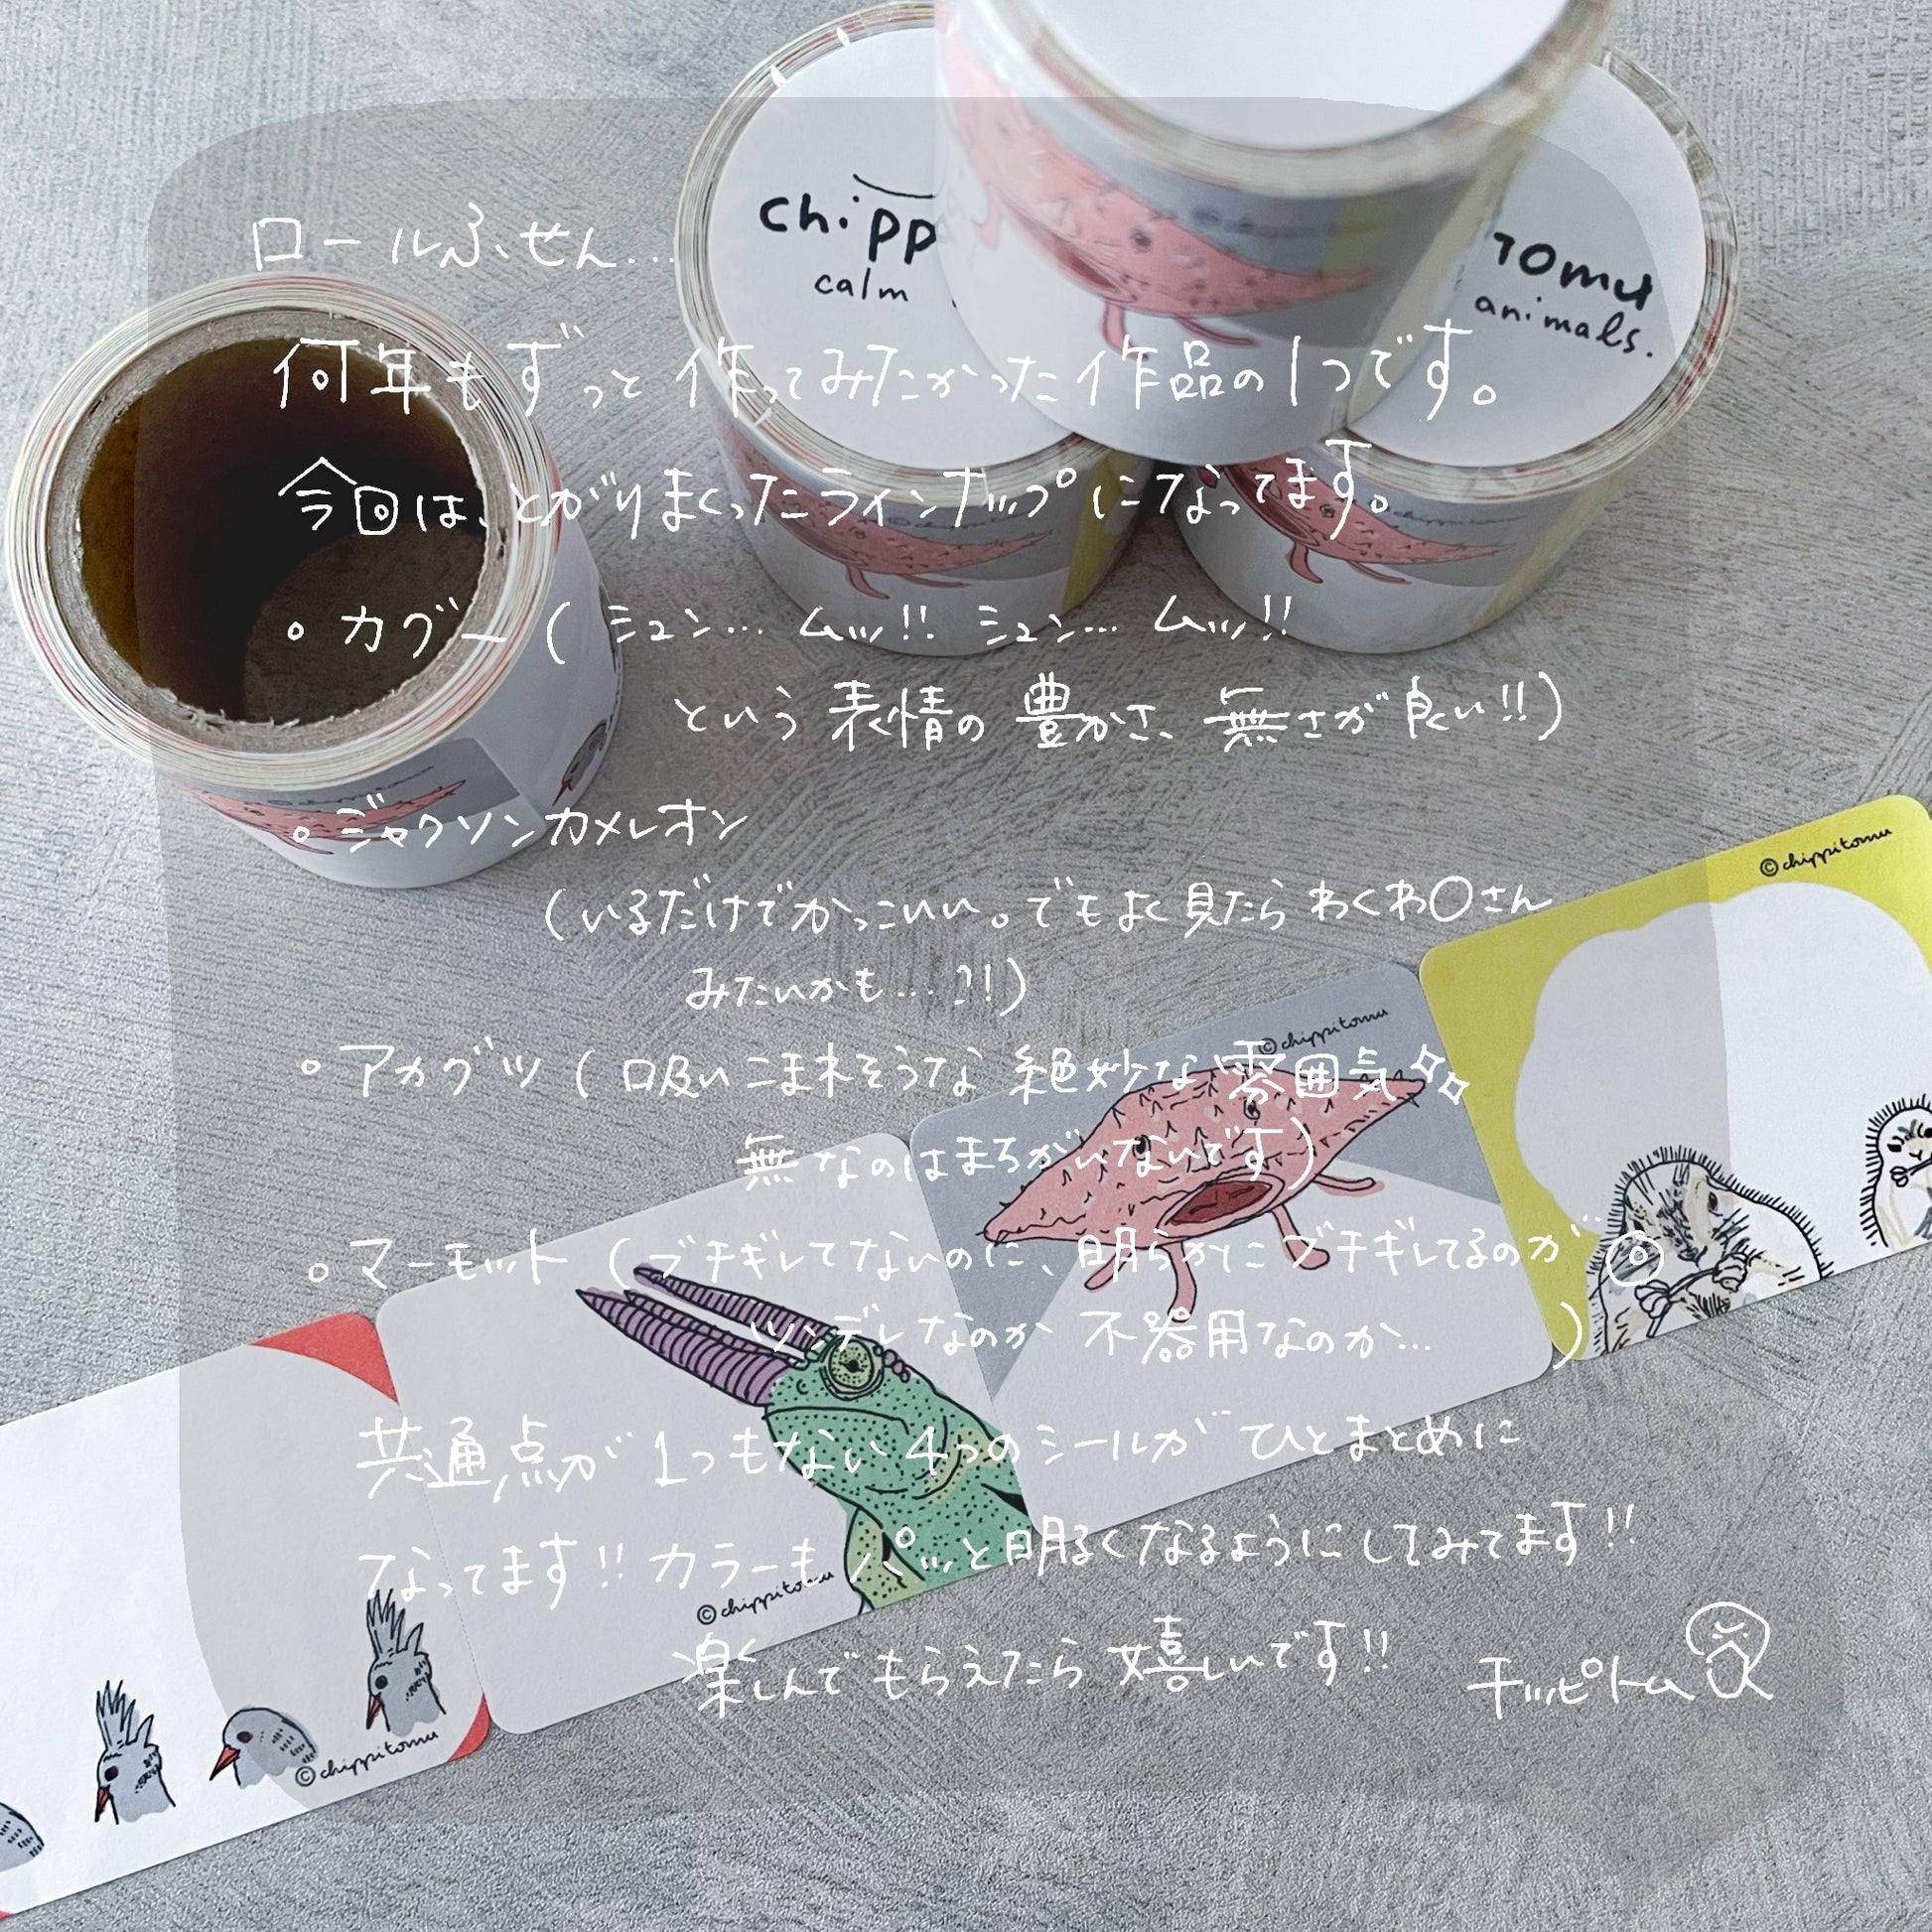 chipp
calm
tomu
animals.
ロールふせん…
何年もずっと作ってみたかった作品の1つです。
今回は、とがりまくったラインナップになってます。
○ カグー ( シュン… ムッ!! シュン… ムッ!!
という 表情の 豊かさ、無さが良い!!)
○ ジャクソンカメレオン
(いるだけでかっこいい。でもよく見たら わくわ〇さん
みたいかも…?!)
○ アカグツ ( 吸いこまれそうな 絶妙な 雰囲気
無なのはまちがいないです)
○ マーモット (ブチギレてないのに、明らかにブチギレてるのが◎
ツンデレなのか 不器用なのか… )
共通点が 1つもない 4つのシールが ひとまとめに
なってます!! カラーも パッと明るくなるようにしてみてます!!
楽しんでもらえたら嬉しいです!! チッピトム
©chippitomu
©chippitomu
©chippitomu
©chippitomu